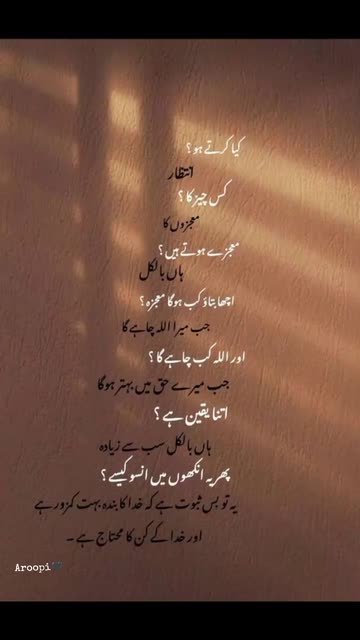 کیا کرتے ہو ؟
انتظار
کس چیز کا ؟
معجزوں کا
معجزے ہوتے ہیں ؟
ہاں بالکل
اچھا بتاؤ کب ہوگا معجزہ ؟
جب میرا اللہ چاہے گا
اور اللہ کب چاہے گا ؟
جب میرے حق میں بہتر ہوگا
اتنا یقین ہے ؟
ہاں بالکل سب سے زیادہ
پھر یہ انکھوں میں انسو کیسے ؟
یہ تو بس ثبوت ہے کہ خدا کا بندہ بہت کمزور ہے
اور خدا کے کن کا محتاج ہے ۔
Aroopi